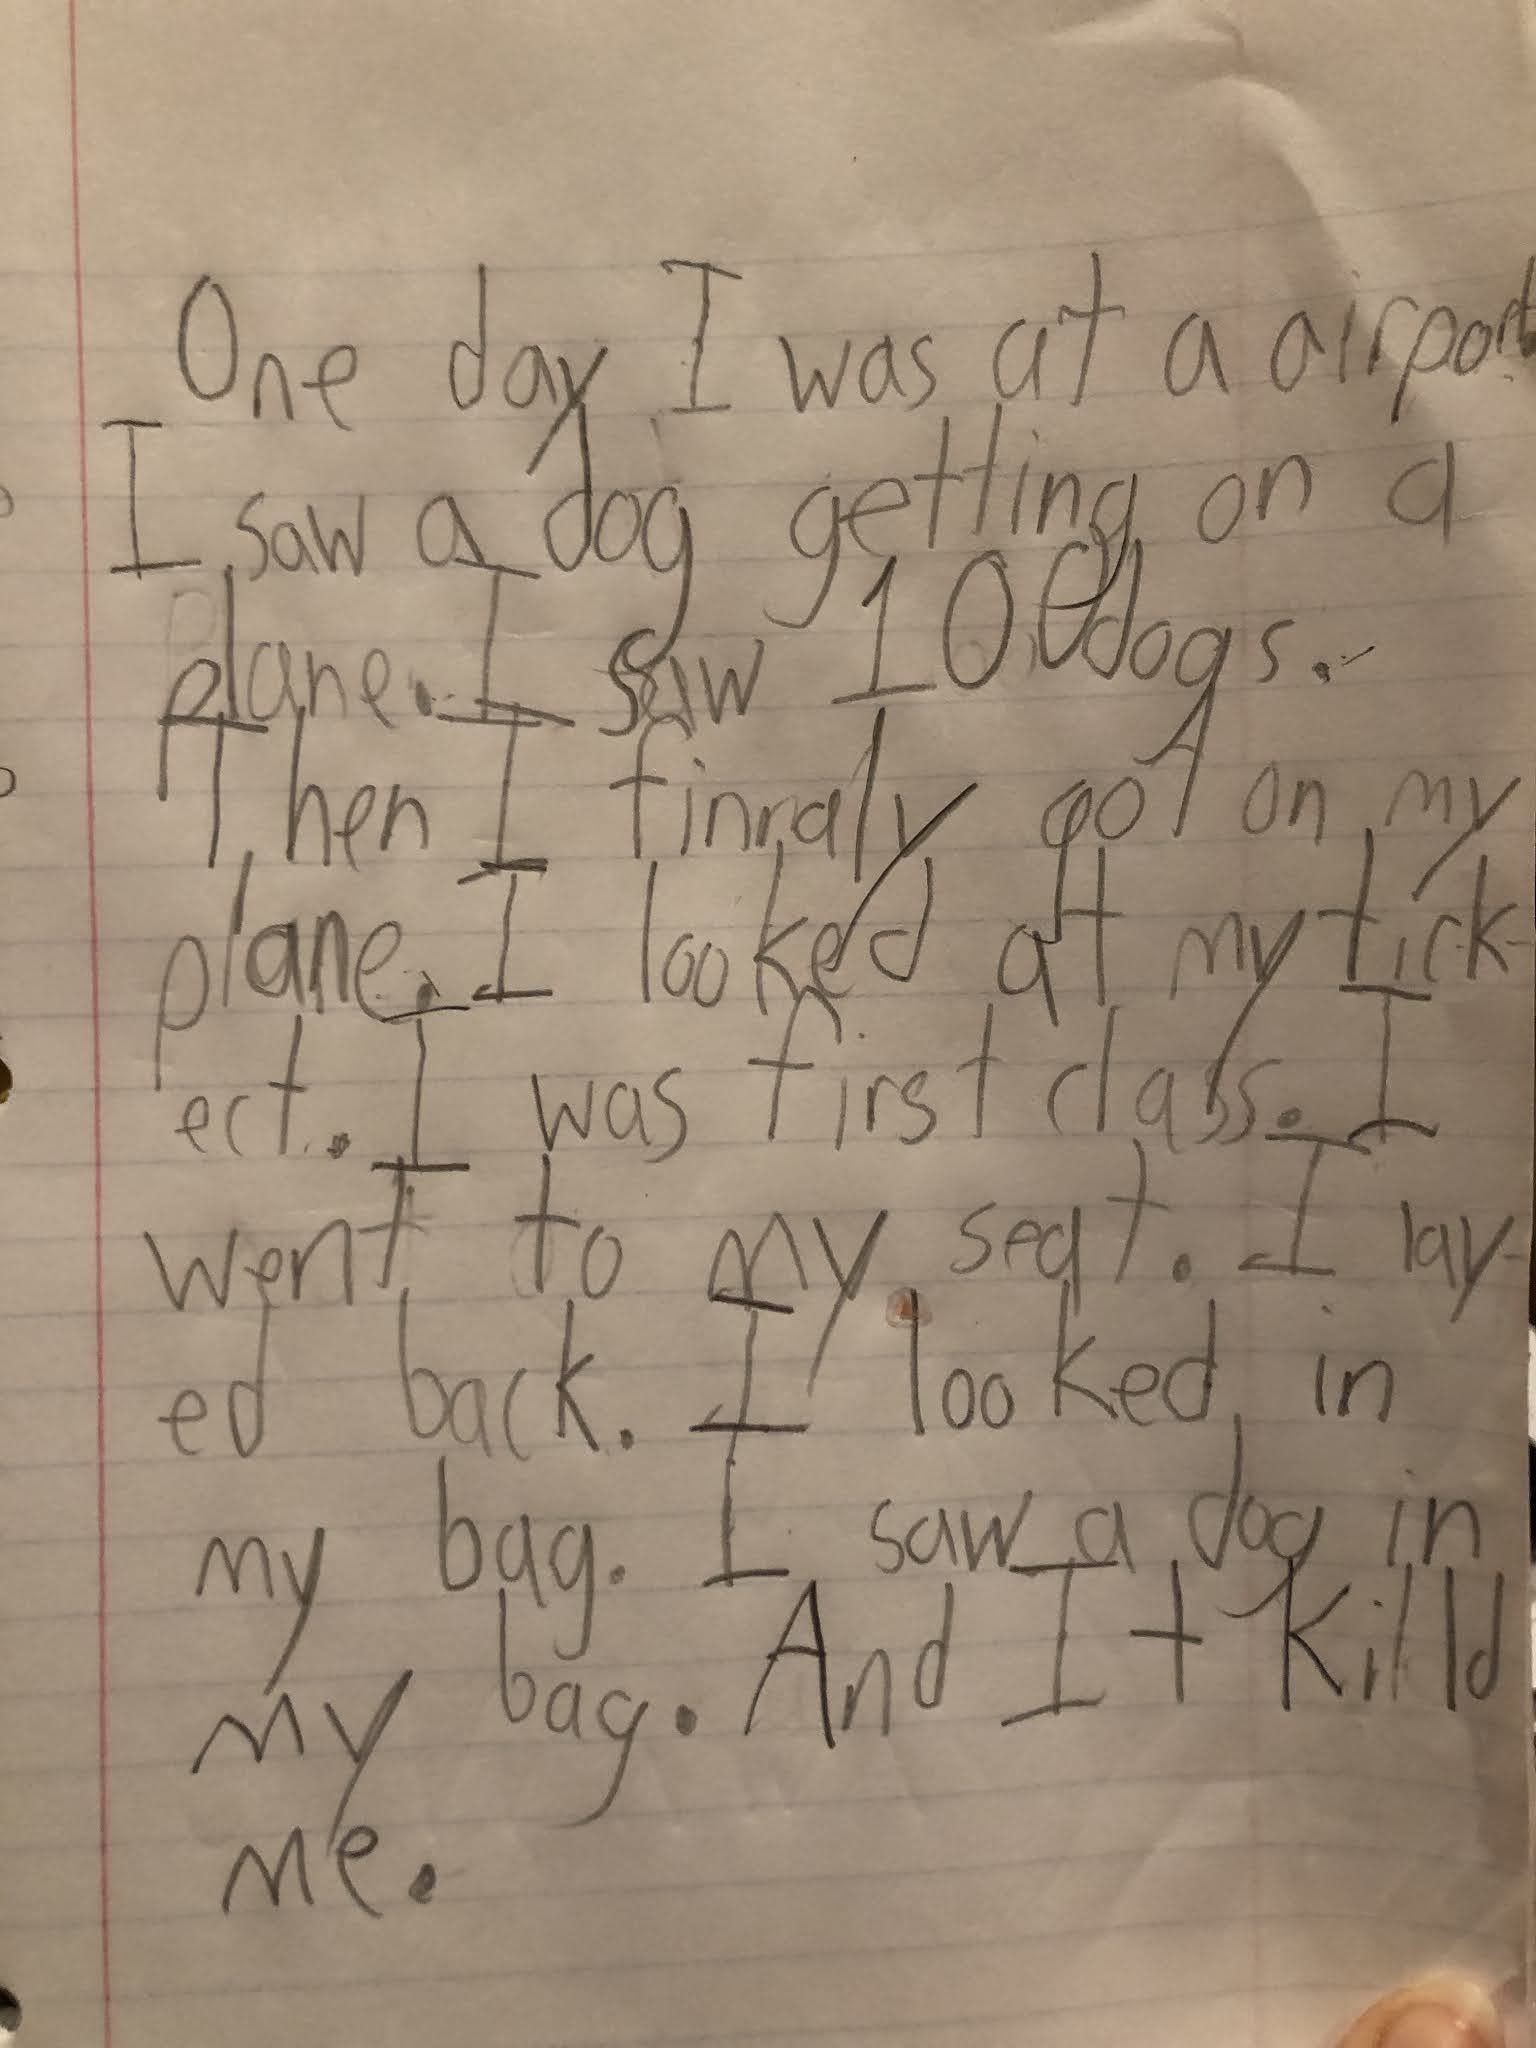 One day I was at a airport
I saw a dog getting on a
plane. I saw 100 dogs.
Then I finraly got on my
plane. I looked at my tick-
ect. I was first class. I
went to my seat. I lay-
ed back. I looked in
my bag. I saw a dog in
my bag. And It killd
me.